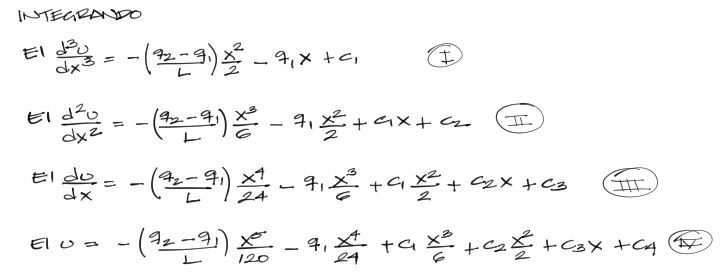 INTEGRANDO
EI d³υ/dx³ = -(q₂-q₁/L) x²/2 - q₁x + c₁ (I)
EI d²υ/dx² = -(q₂-q₁/L) x³/6 - q₁ x²/2 + c₁x + c₂ (II)
EI dυ/dx = -(q₂-q₁/L) x⁴/24 - q₁ x³/6 + c₁ x²/2 + c₂x + c₃ (III)
EI υ = -(q₂-q₁/L) x⁵/120 - q₁ x⁴/24 + c₁ x³/6 + c₂ x²/2 + c₃x + c₄ (IV)